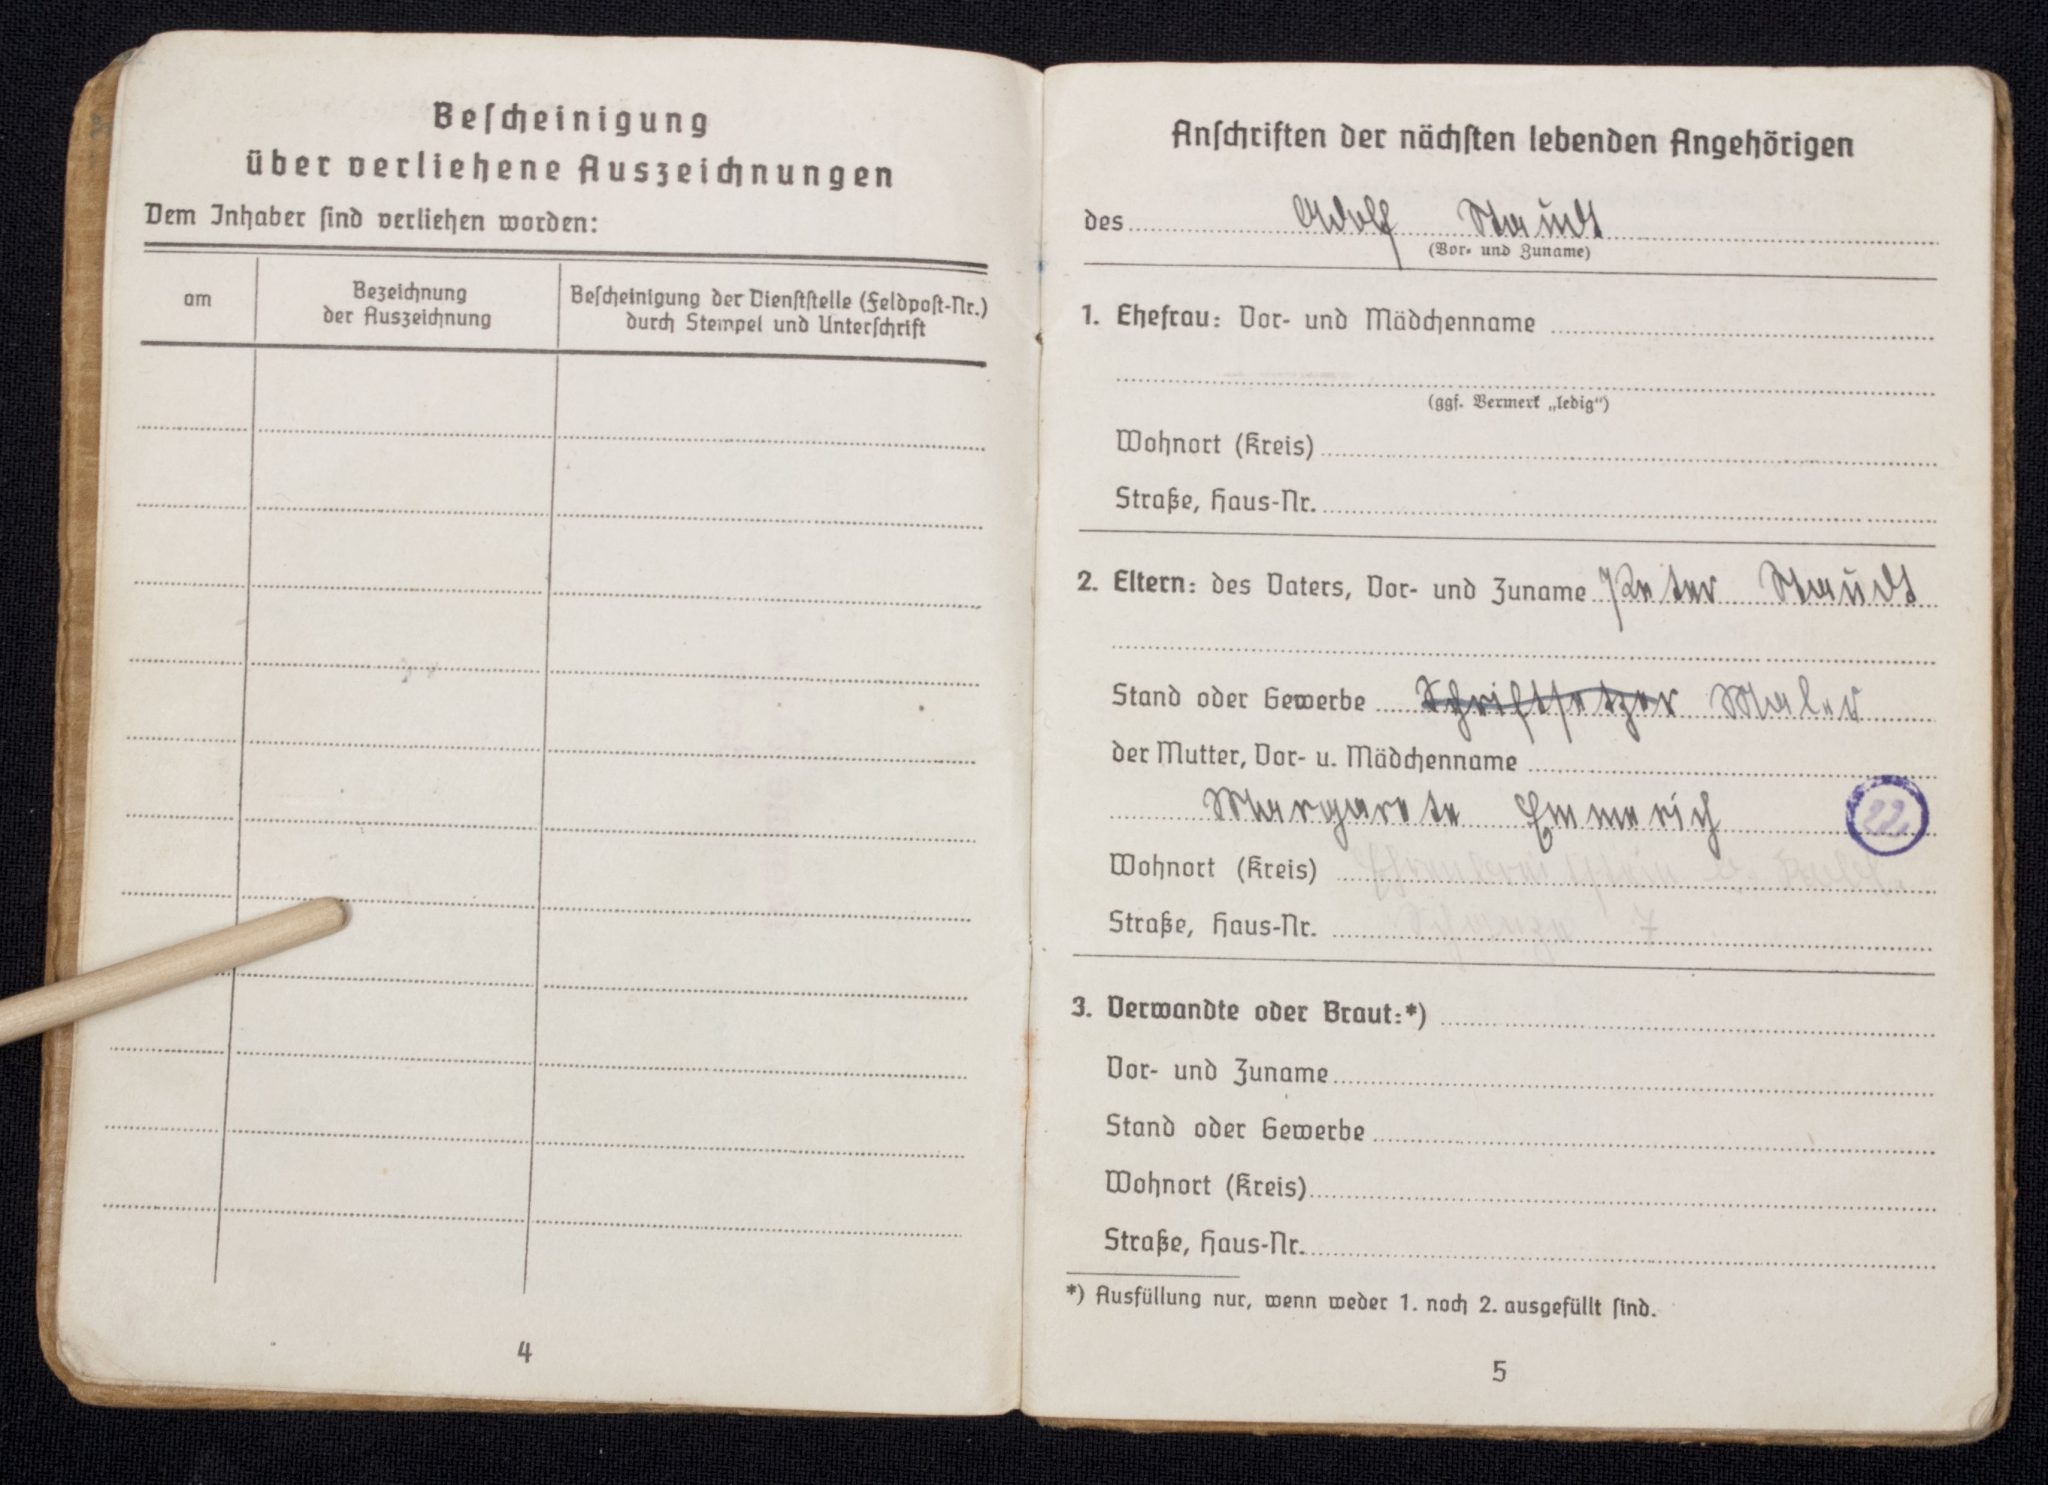 Bescheinigung
über verliehene Auszeichnungen
Dem Inhaber sind verliehen worden:
am
Bezeichnung
der Auszeichnung
Bescheinigung der Dienststelle (Feldpost-Nr.)
durch Stempel und Unterschrift
4
Anschriften der nächsten lebenden Angehörigen
des Adolf Staudt
(Vor- und Zuname)
1. Ehefrau: Vor- und Mädchenname
(ggf. Vermerk „ledig“)
Wohnort (Kreis)
Straße, Haus-Nr.
2. Eltern: des Vaters, Vor- und Zuname Peter Staudt
Stand oder Gewerbe Schriftsetzer Maler
der Mutter, Vor- u. Mädchenname
Margarete Emmerich
22
Wohnort (Kreis) Ehrenbreitstein b. Kobl.
Straße, Haus-Nr. 7
3. Verwandte oder Braut:*)
Vor- und Zuname
Stand oder Gewerbe
Wohnort (Kreis)
Straße, Haus-Nr.
*) Ausfüllung nur, wenn weder 1. noch 2. ausgefüllt sind.
5